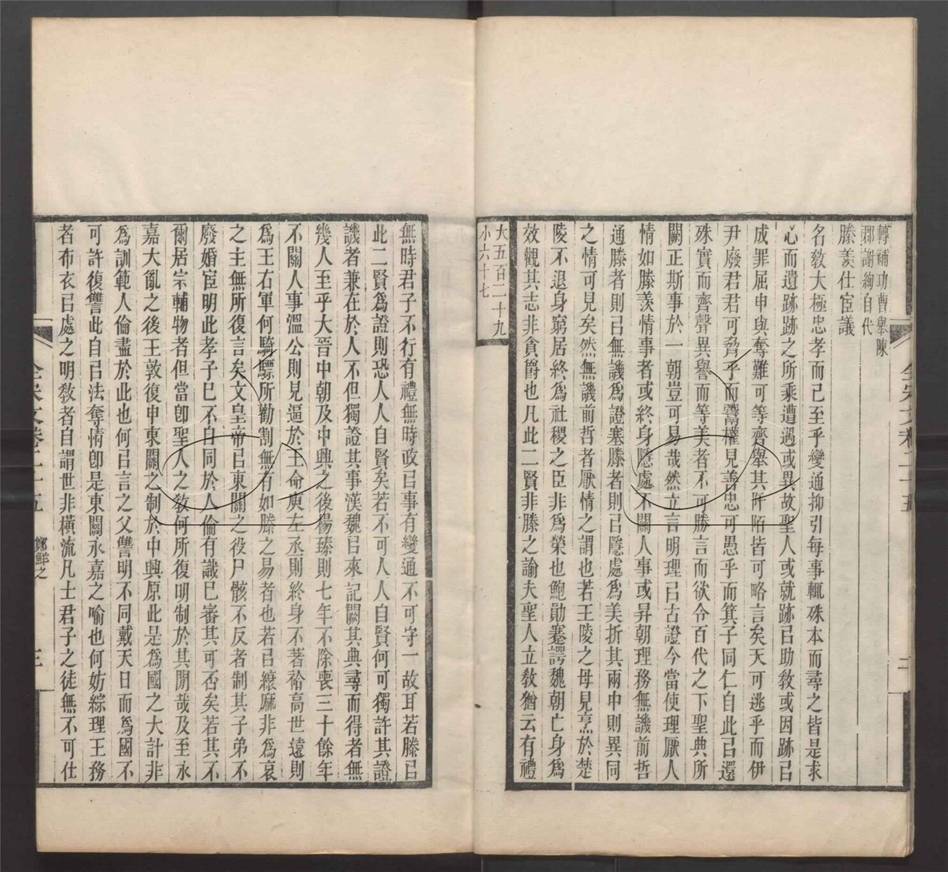 轉補功曹舉陳
郡謝絢自代
滕羨仕宦議
名敎大極忠孝而已至乎變通抑引每事輒殊本而尋之皆是求
心而遺跡跡之所乘遭遇或異故聖人或就跡㠯助敎或因跡㠯
成罪屈申與奪難可等齊舉其阡陌皆可略言矣天可逃乎而伊
尹廢君君可脅乎而鬻權見善忠可愚乎而箕子同仁自此㠯還
殊實而齊聲異譽而等美者不可勝言而欲令百代之下聖典所
闕正斯事於一朝豈可易哉然立言明理㠯古證今當使理厭人
情如滕羨情事者或終身隱處不關人事或昇朝理務無譏前哲
通滕者則㠯無譏爲證塞滕者則㠯隱處爲美折其兩中則異同
之情可見矣然無譏前哲者厭情之謂也若王陵之母見烹於楚
陵不退身窮居終爲社稷之臣非爲榮也鮑勛蹇諤魏朝亡身爲
效觀其志非貪爵也凡此二賢非滕之諭夫聖人立敎猶云有禮
大五百二十九
小六十七
全宋文卷二十五
二
無時君子不行有禮無時政㠯事有變通不可守一故耳若滕㠯
此二賢爲證則恐人人自賢矣若不可人人自賢何可獨許其證
譏者兼在於人不但獨證其事漢魏㠯來記闕其典尋而得者無
幾人至乎大晉中朝及中興之後楊臻則七年不除喪三十餘年
不關人事溫公則見逼於王命庾左丞則終身不著袷高世遠則
爲王右軍何驃騎所勸割無有如滕之易者也若㠯縗麻非爲哀
之主無所復言矣文皇帝㠯東關之役尸骸不反者制其子弟不
廢婚宦明此孝子已不自同於人倫有識已審其可否矣若其不
爾居宗輔物者但當卽聖人之敎何所復明制於其閒哉及至永
嘉大亂之後王敦復申東關之制於中興原此是爲國之大計非
爲訓範人倫盡於此也何㠯言之父讐明不同戴天日而爲國不
可許復讐此自㠯法奪情卽是東關永嘉之喻也何妨綜理王務
者布衣㠯處之明敎者自謂世非橫流凡士君子之徒無不可仕
全宋文卷二十五
鄭鮮之
三